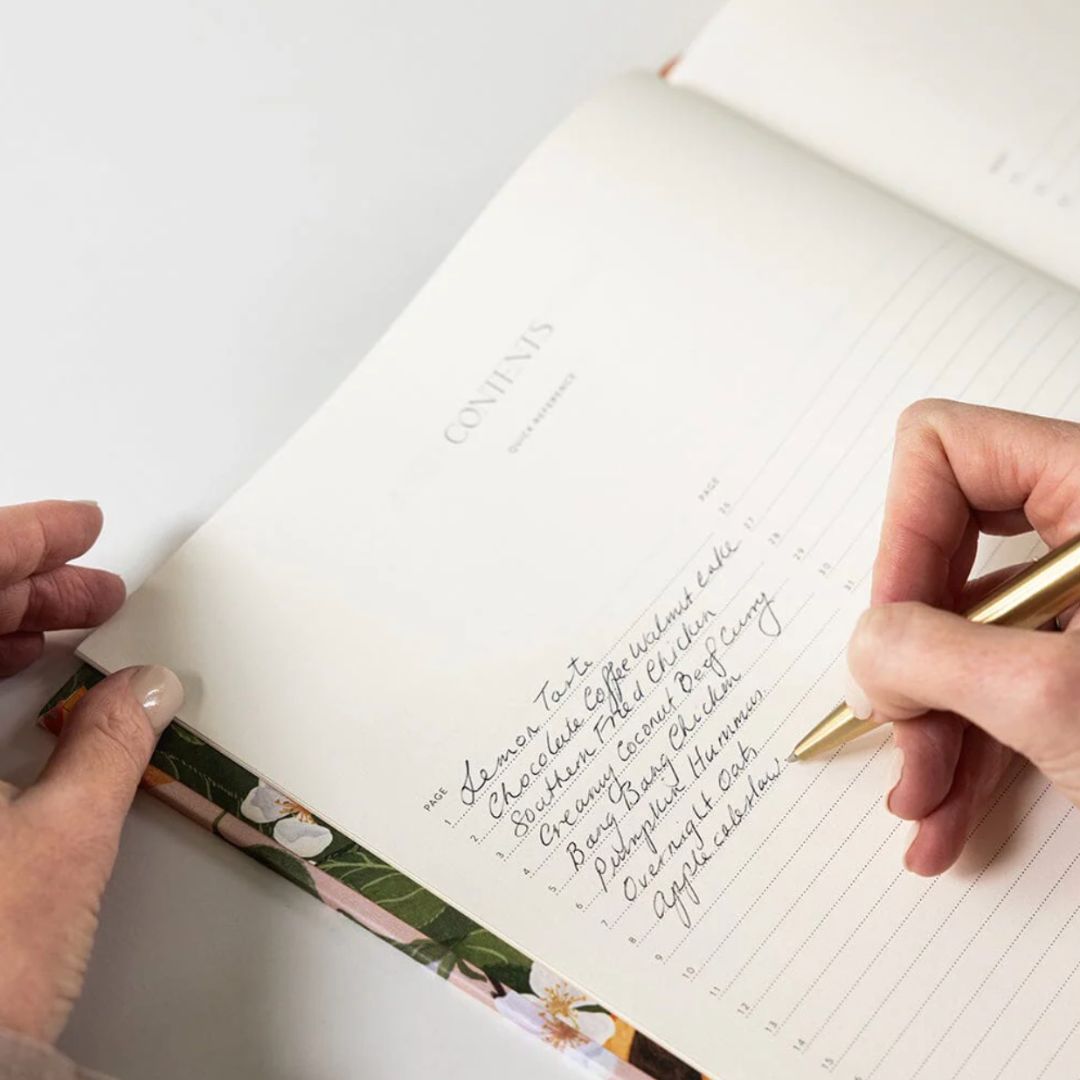 CONTENTS
QUICK REFERENCE
PAGE
1 Lemon Tarte
2 Chocolate Coffee Walnut Cake
3 Southern Fried Chicken
4 Creamy Coconut Beef Curry
5 Bang Bang Chicken
6 Pumpkin Hummus
7 Overnight Oats
8 Apple coleslaw
9
10
11
12
13
14
15
PAGE
26
27
28
29
30
31